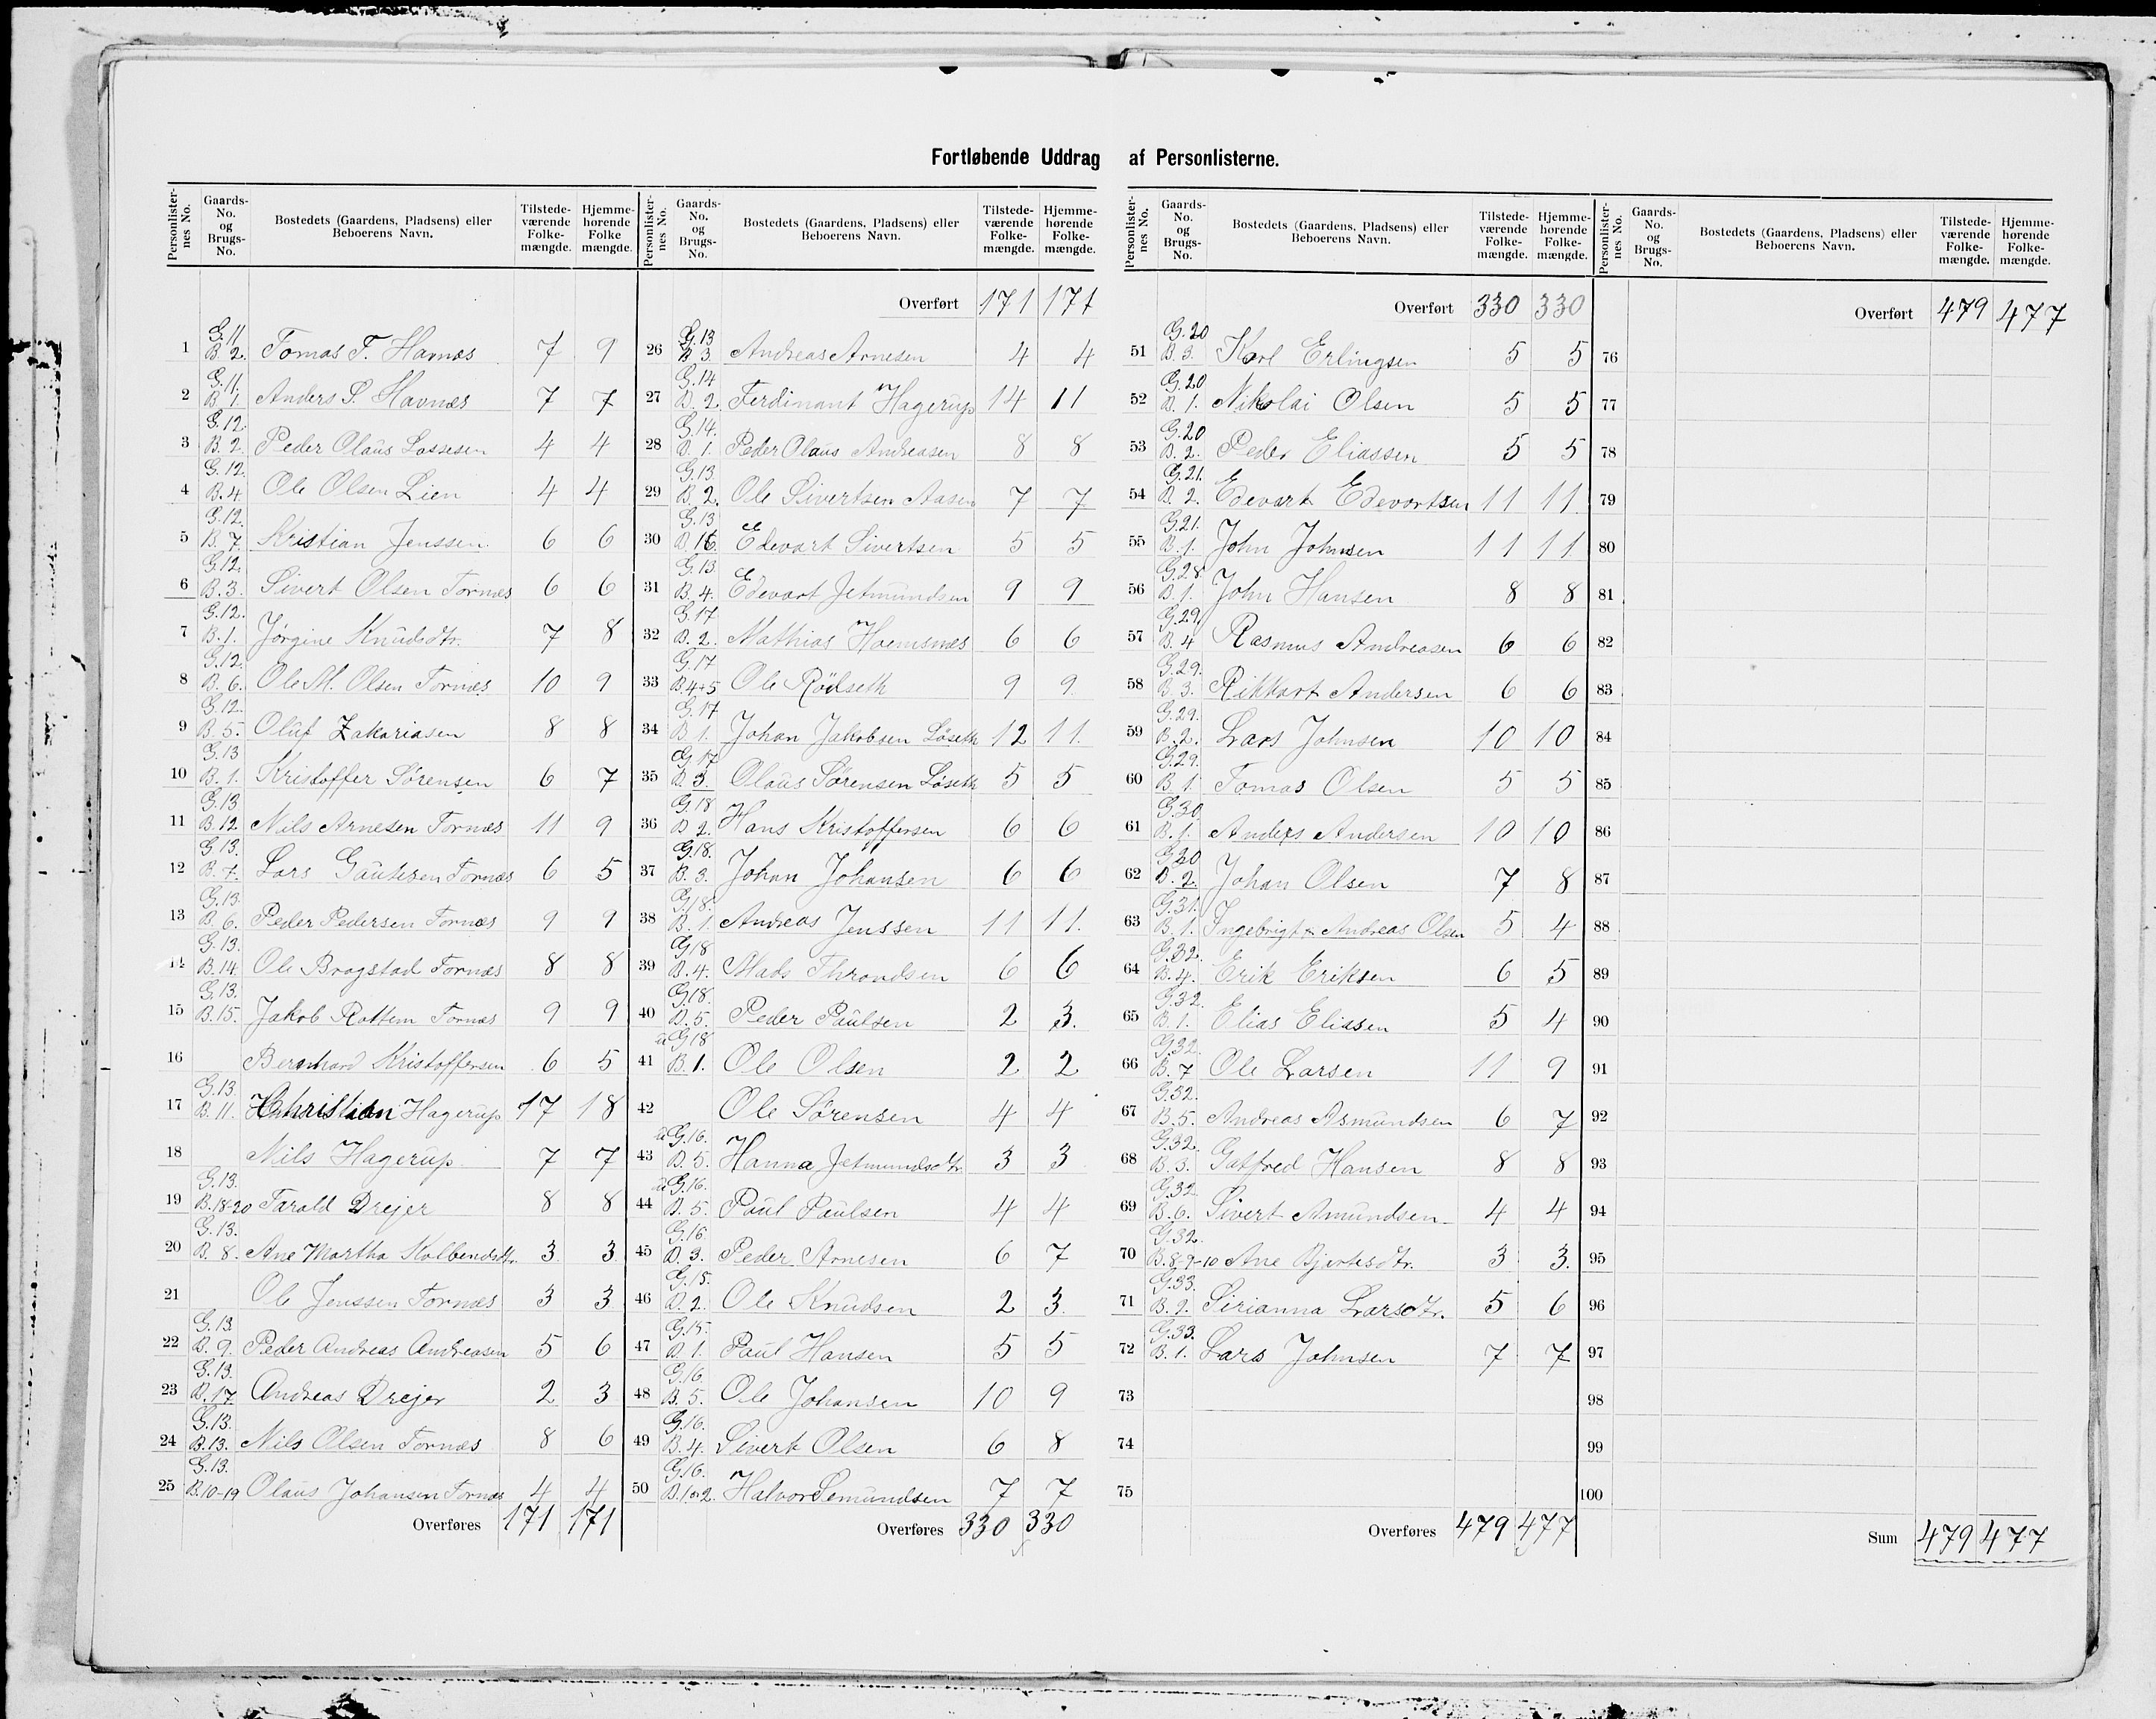 Fortløbende Uddrag af Personlisterne.
Personlister-nes No. Gaards-No. og Brugs-No. Bostedets (Gaardens, Pladsens) eller Beboerens Navn. Tilstede-værende Folke-mængde. Hjemme-hørende Folke mængde.
1 G.11 B.2. Tomas T. Havnæs 7 9
2 G.11. B.1. Anders P. Havnæs 7 7
3 G.12. B.2. Peder Olaus Lassesen 4 4
4 G.12. B.4. Ole Olsen Lien 4 4
5 G.12. B.7. Kristian Jenssen 6 6
6 G.12. B.3. Sivert Olsen Tornæs 6 6
7 G.12. B.1. Jørgine Knudsdtr. 7 8
8 G.12. B.6. Ole M. Olsen Tornæs 10 9
9 G.12. B.5. Oluf Zakariasen 8 8
10 G.13 B.1. Kristoffer Sørensen 6 7
11 G.13 B.12 Nils Arnesen Tornæs 11 9
12 G.13. B.7. Lars Gautesen Tornæs 6 5
13 G.13. B.6. Peder Pedersen Tornæs 9 9
14 G.13. B.14. Ole Bragstad Tornæs 8 8
15 G.13. B.15. Jakob Rottem Tornæs 9 9
16 Bernhard Kristoffersen 6 5
17 G.13. B.11. Christian Hagerup 17 18
18 Nils Hagerup 7 7
19 G.13. B.18-20 Tarald Drejer 8 8
20 G.13. B.8. Ane Martha Kolbendsdtr. 3 3
21 Ole Jenssen Tornæs 3 3
22 G.13. B.9. Peder Andreas Andreasen 5 6
23 G.13. B.17. Andreas Drejer 2 3
24 G.13. B.13. Nils Olsen Tornæs 8 6
25 G.13. B.10-19 Olaus Johansen Tornæs 4 4
Overføres 171 171
Personlister-nes No. Gaards-No. og Brugs-No. Bostedets (Gaardens, Pladsens) eller Beboerens Navn. Tilstede-værende Folke-mængde. Hjemme-hørende Folke-mængde.
Overført 171 171
26 G.13 B.3. Andreas Arnesen 4 4
27 G.14 B.2. Ferdinant Hagerup 14 11
28 G.14. B.1. Peder Olaus Andreasen 8 8
29 G.13. B.2. Ole Sivertsen Aasen 7 7
30 G.13 B.16. Edevart Sivertsen 5 5
31 G.13. B.4. Edevart Jetmundsen 9 9
32 G.17 B.2. Mathias Hoemsnæs 6 6
33 G.17 B.4+5 Ole Rödseth 9 9
34 G.17 B.1. Johan Jakobsen Løseth 12 11
35 G.17 B.3. Olaus Sørensen Løseth 5 5
36 G.18 B.2. Hans Kristoffersen 6 6
37 G.18. B.3. Johan Johansen 6 6
38 G.18. B.1. Andreas Jenssen 11 11
39 G.18 B.4. Mads Throndsen 6 6
40 G.18. B.5. Peder Paulsen 2 3
41 u G.18 B.1. Ole Olsen 2 2
42 Ole Sørensen 4 4
43 u G.16. B.5. Hanna Jetmundsdtr. 3 3
44 u G.16. B.5. Paul Paulsen 4 4
45 G.16 B.3. Peder Arnesen 6 7
46 G.15. B.2. Ole Knudsen 2 3
47 G.15. B.1. Paul Hansen 5 5
48 G.16. B.5. Ole Johansen 10 9
49 G.16. B.4. Sivert Olsen 6 8
50 G.16. B.1 og 2. Halvor Semundsen 7 7
Overføres 330 330
Personlister-nes No. Gaards-No. og Brugs-No. Bostedets (Gaardens, Pladsens) eller Beboerens Navn. Tilstede-værende Folke-mængde. Hjemme-hørende Folke-mængde.
Overført 330 330
51 G.20 B.3. Karl Erlingsen 5 5
52 G.20 B.1. Nikolai Olsen 5 5
53 G.20 B.2. Peder Eliassen 5 5
54 G.21. B.2. Edevart Edevartsen 11 11
55 G.21. B.1. John Johnsen 11 11
56 G.28. B.1. John Hansen 8 8
57 G.29. B.4 Rasmus Andreasen 6 6
58 G.29. B.3. Rikkart Andersen 6 6
59 G.29. B.2. Lars Johnsen 10 10
60 G.29. B.1. Tomas Olsen 5 5
61 G.30. B.1. Anders Andersen 10 10
62 G.20 B.2. Johan Olsen 7 8
63 G.31. B.1. Ingebrigt & Andreas Olsen 5 4
64 G.32. B.4. Erik Eriksen 6 5
65 G.32. B.1. Elias Eliasen 5 4
66 G.32. B.7 Ole Larsen 11 9
67 G.32. B.5. Andreas Asmundsen 6 7
68 G.32. B.3. Gatfred Hansen 8 8
69 G.32. B.6. Sivert Amundsen 4 4
70 G.32. B.8-9-10 Ane Bjertesdtr. 3 3
71 G.33. B.2. Sirianna Larsdtr. 5 6
72 G.33. B.1. Lars Johnsen 7 7
73
74
75
Overføres 479 477
Personlister-nes No. Gaards-No. og Brugs-No. Bostedets (Gaardens, Pladsens) eller Beboerens Navn. Tilstede-værende Folke-mængde. Hjemme-hørende Folke-mængde.
Overført 479 477
76
77
78
79
80
81
82
83
84
85
86
87
88
89
90
91
92
93
94
95
96
97
98
99
100
Sum 479 477